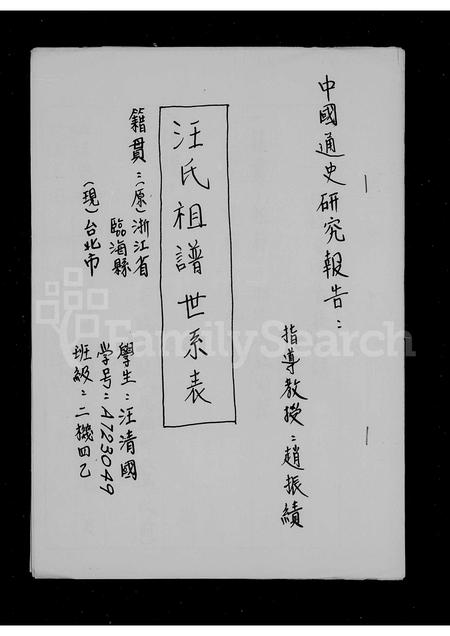 中國通史研究報告：
指導教授：趙振績
汪氏祖譜世系表
籍貫：(原)浙江省
臨海縣
(現)台北市
學生：汪清國
学号：A723049
班級：二機四乙
FamilySearch